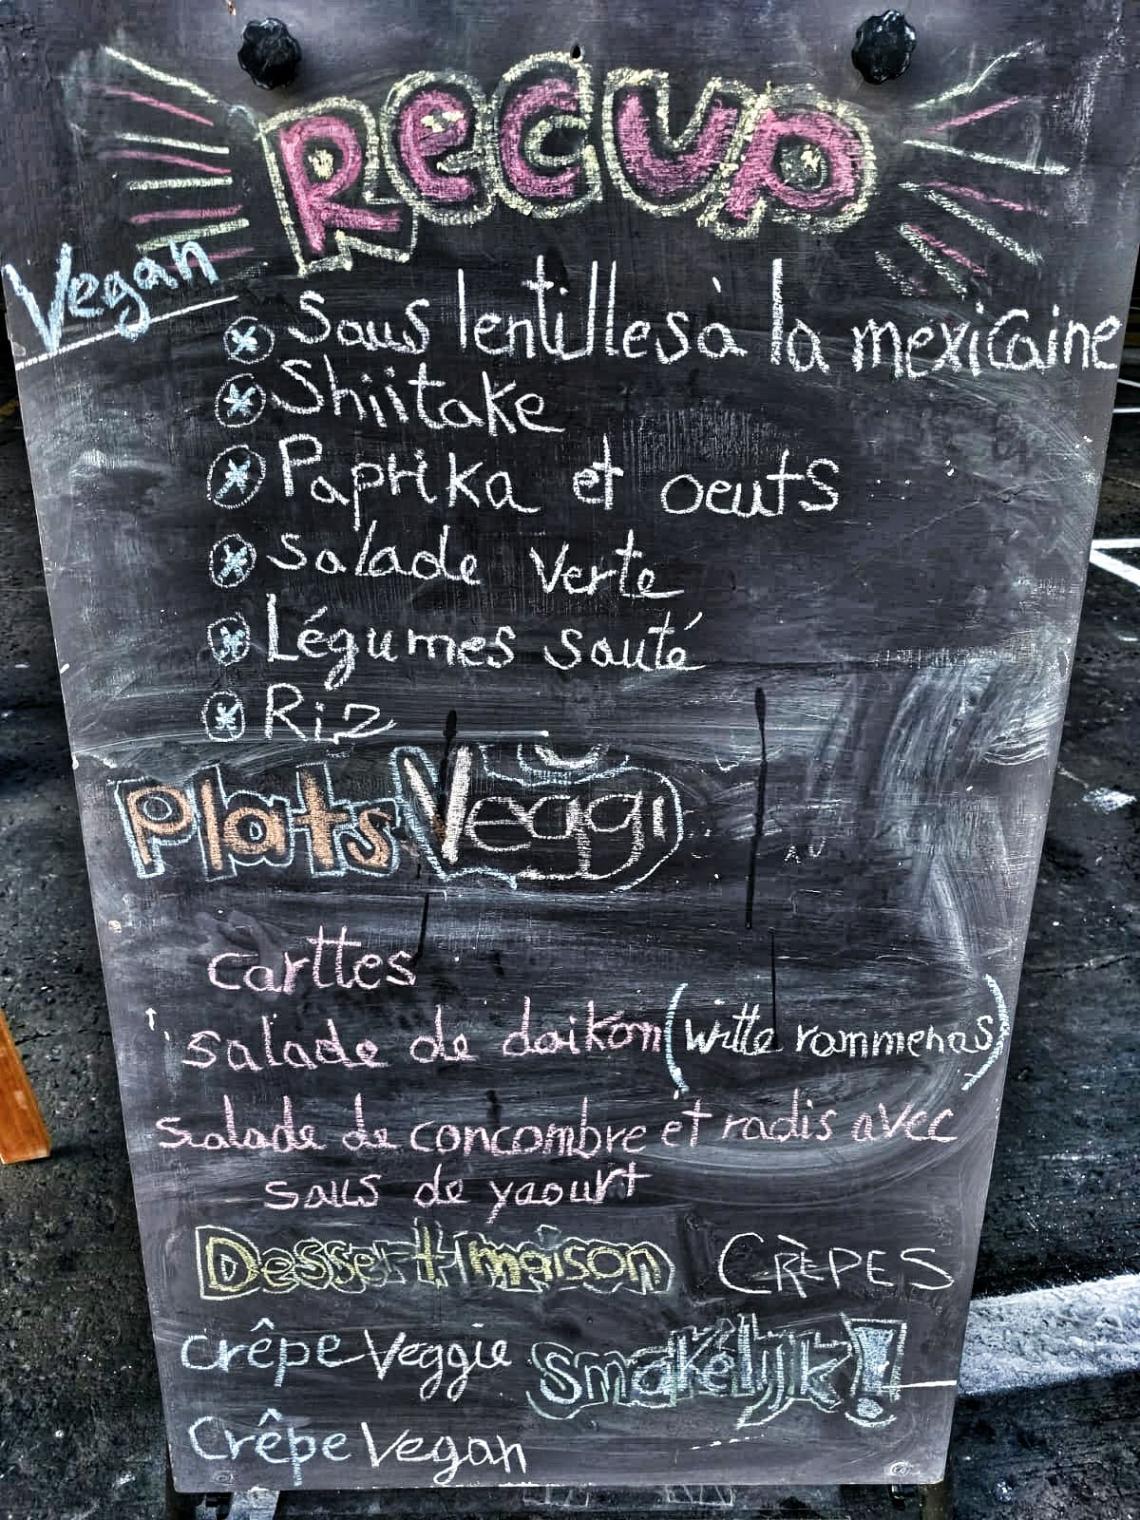 Recup
Vegan
Saus lentilles à la mexicaine
Shiitake
Paprika et oeuts
Salade verte
Légumes sauté
Riz
Plats Veggi
carttes
salade de daikon (witte rammenas)
salade de concombre et radis avec
saus de yaourt
Dessert maison CRÈPES
crêpe Veggie Smakelijk!
Crêpe Vegan